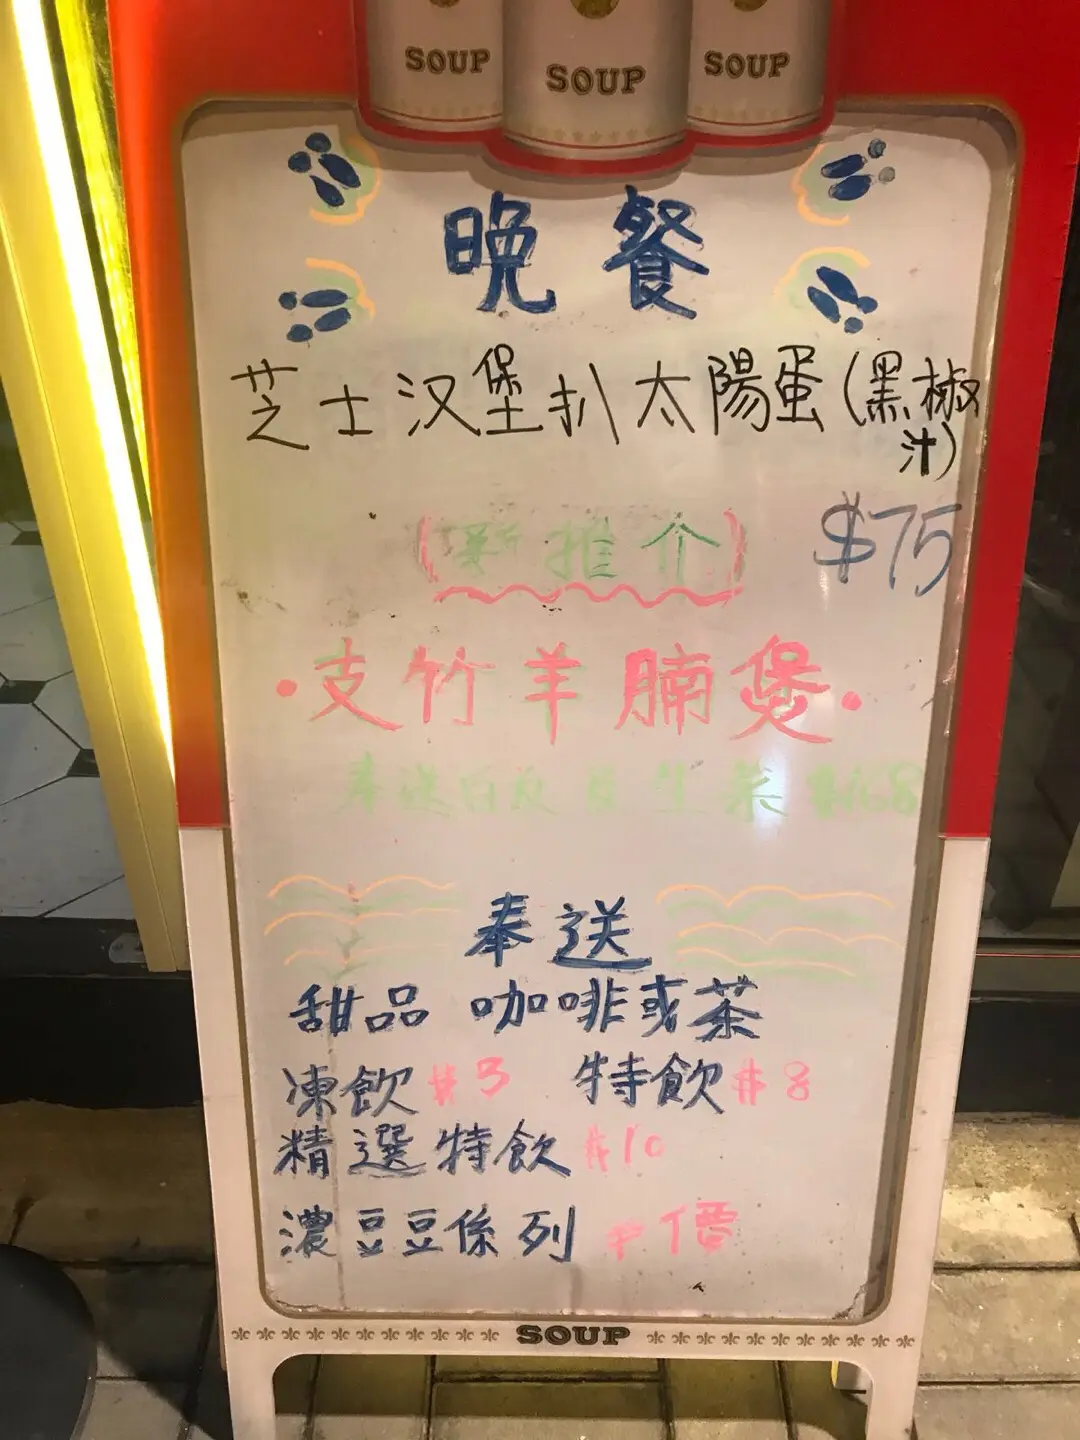 SOUP SOUP SOUP
晚餐
芝士汉堡扒太陽蛋(黑椒汁)
$75
(新推介)
·支竹羊腩煲·
奉送白飯及生菜 $168
奉送
甜品 咖啡或茶
凍飲 $3 特飲 $8
精選特飲 $10
濃豆豆係列
SOUP